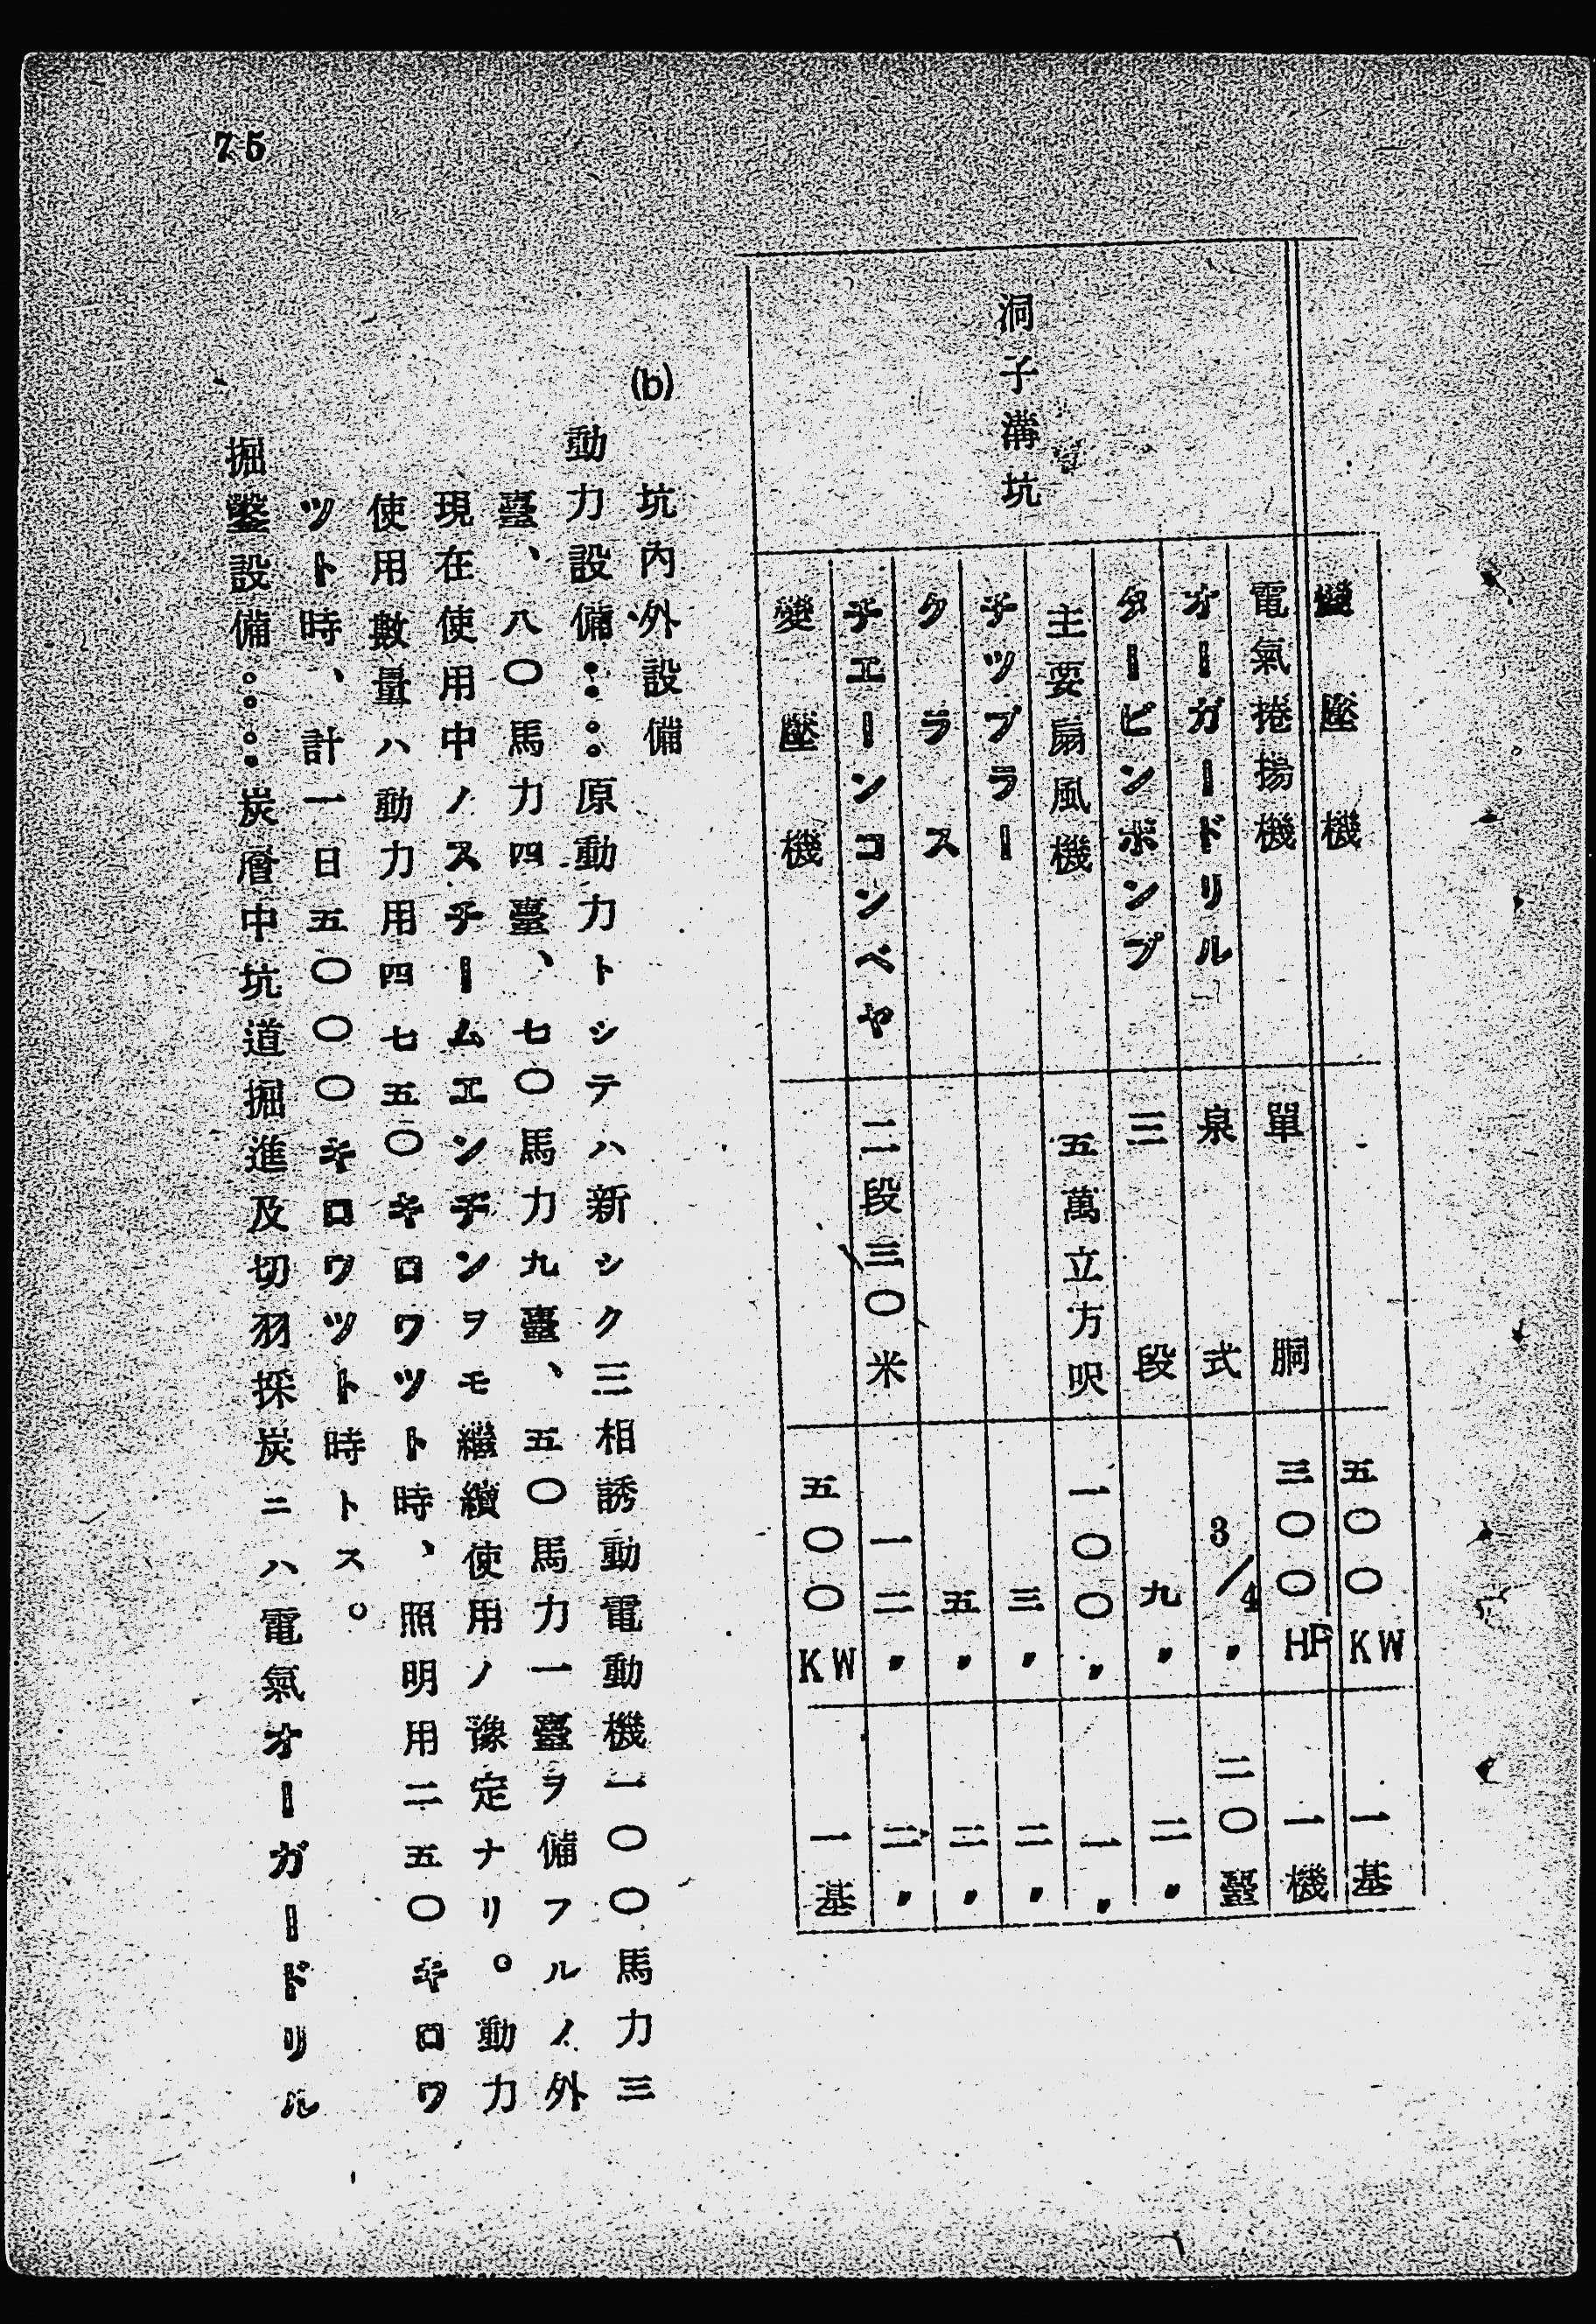 變壓機 五〇〇KW 一基
洞子溝坑
電氣捲揚機 單胴 三〇〇HP 一機
オーガードリル 泉式 3/4〃 二〇臺
タービンポンプ 三段 九〃 二〃
主要扇風機 五萬立方呎 一〇〇〃 一〃
チツプラー 三〃 二〃
クラス 五〃 二〃
チエーンコンベヤ 二段三〇米 一二〃 二〃
變壓機 五〇〇KW 一基
(b) 坑內外設備
動力設備……原動力トシテハ新シク三相誘動電動機一〇〇馬力三
臺、八〇馬力四臺、七〇馬力九臺、五〇馬力一臺ヲ備フルノ外
現在使用中ノスチームエンヂンヲモ繼續使用ノ豫定ナリ。動力
使用數量ハ動力用四七五〇キロワツト時、照明用二五〇キロワ
ツト時、計一日五〇〇〇キロワツト時トス。
掘鑿設備……炭層中坑道掘進及切羽採炭ニハ電氣オーガードリル
75